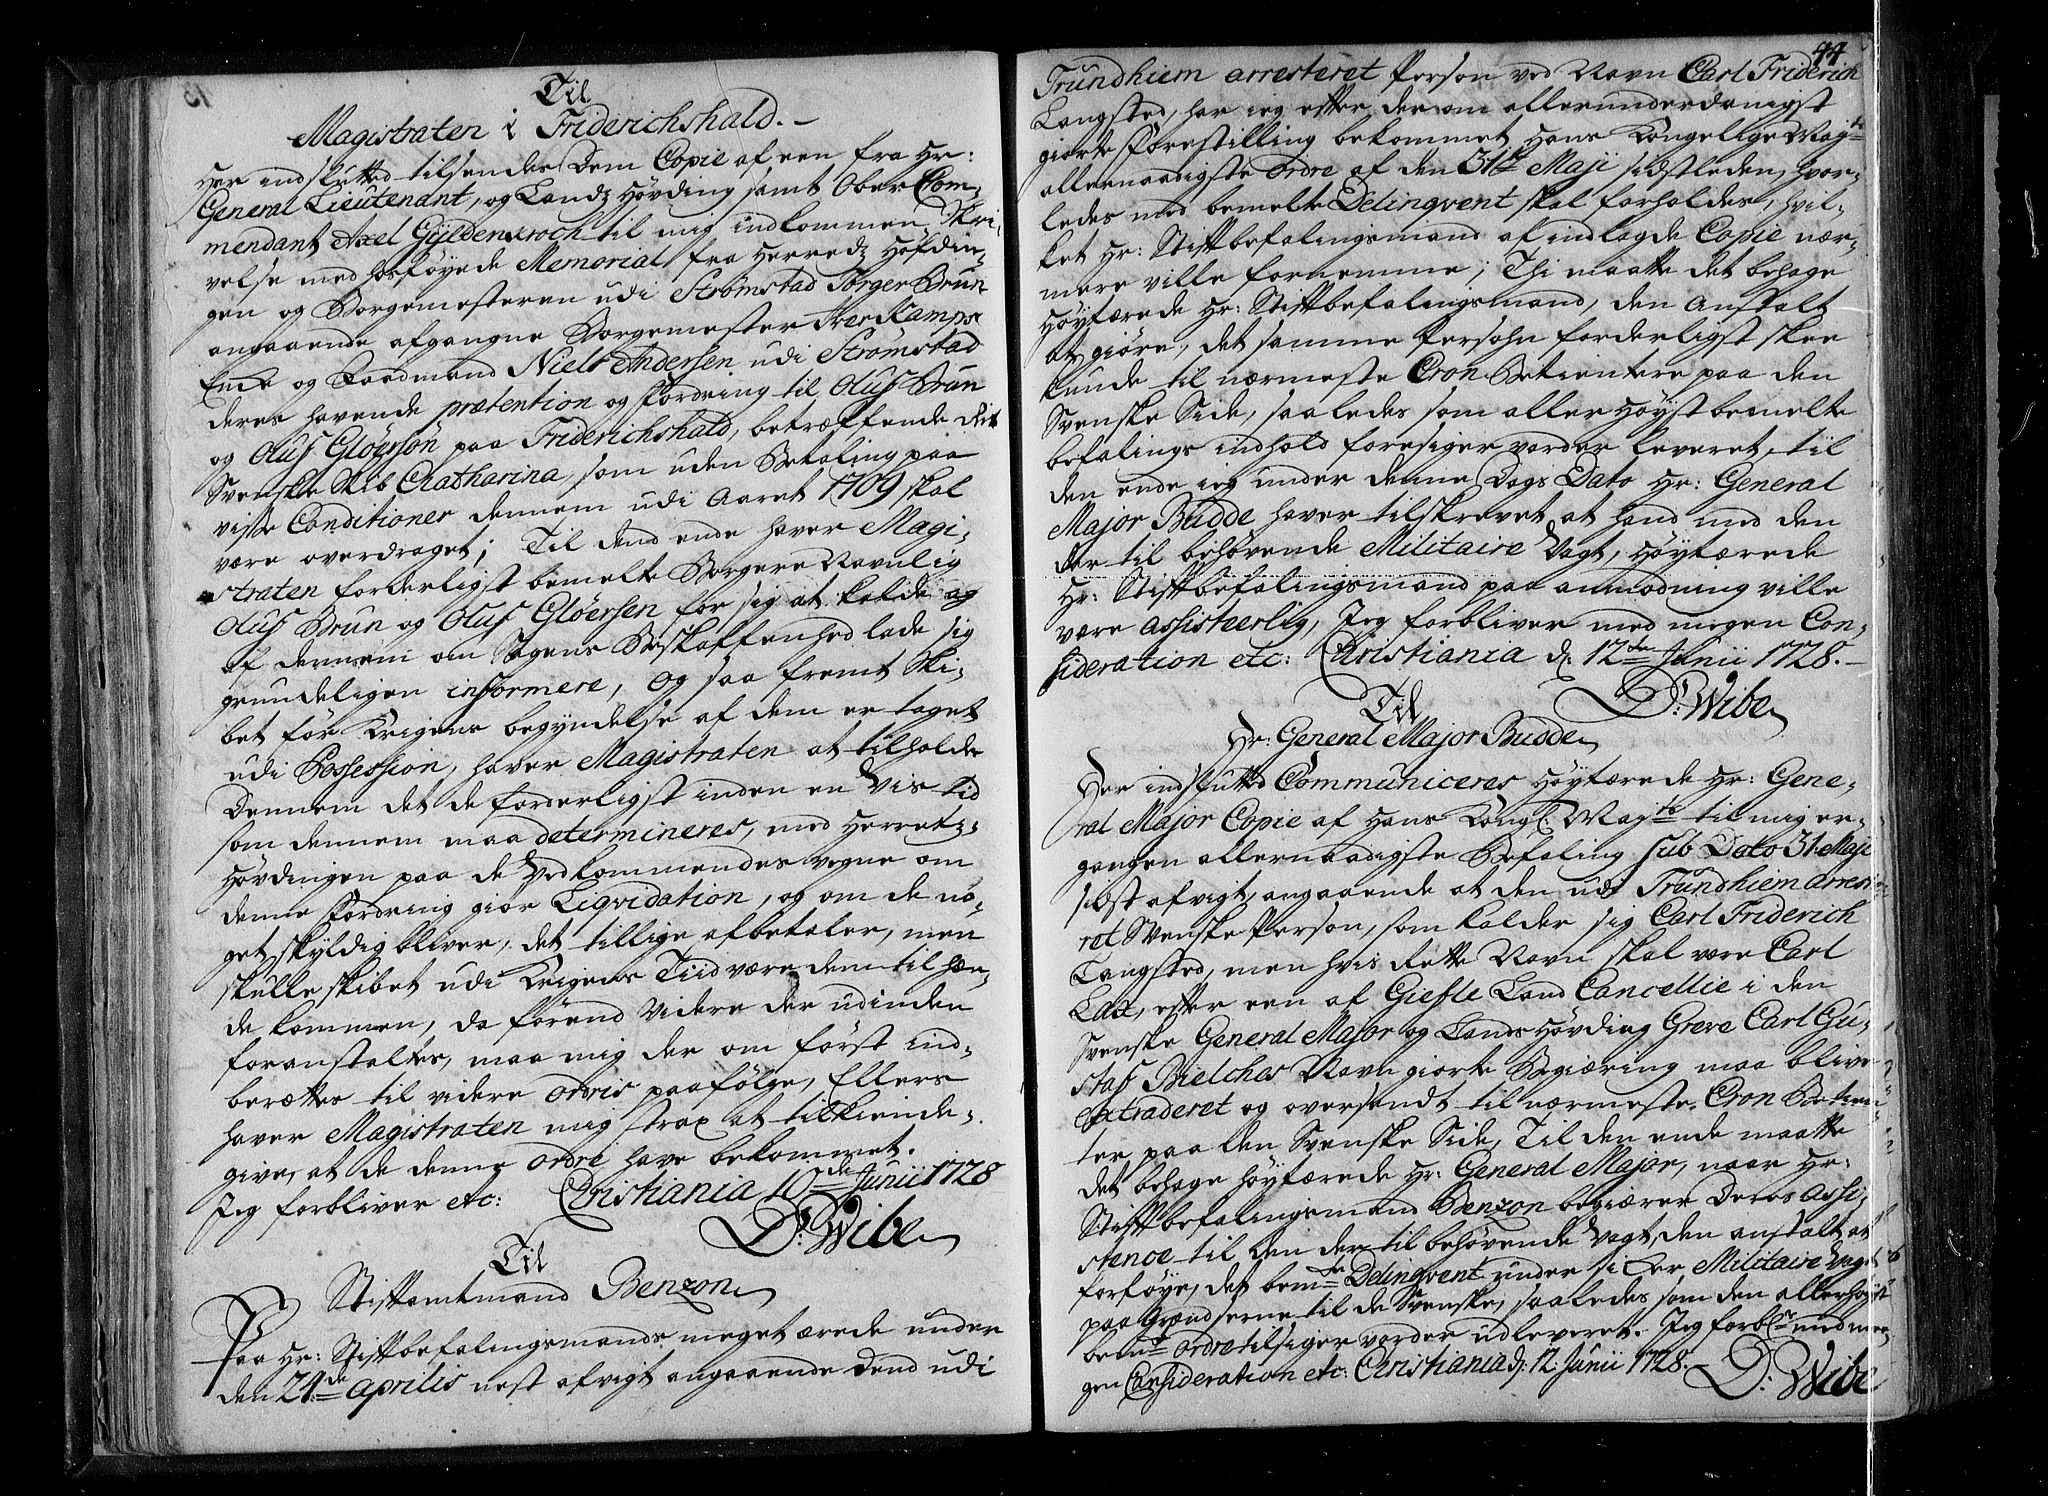 Til
Magistraten i Friderichshald.-
Her indslutted tilsendes Dem Copie af een fra Hr:
General Lieutenant, og Landz Høvding samt Ober Com-
mendant Axel Gÿldenkroch til mig indkommen Skri-
velse med hosføyede Memorial fra Herredz Høfdin-
gen og Borgemesteren udi Strømstad Torger Brun
angaaende afgangne Borgemester Iver Kamps
Enke og Raadmand Niels Andersen udi Strømstad
deres havende prætention og fordring til Oluf Brun
og Oluf Gløersøn paa Friderichshald, betræffende dit
Svenske Skib Chatharina, som uden Betaling paa
visse Conditioner dennem udi Aaret 1709 skal
være overdraget; Til dend ende haver Magi-
straten forderligst bemelte Borgere Navnlig
Oluf Brun og Oluf Gløersen for sig at kalde og
af dennem om Sagens Beskaffenhed lade sig
grundeligen informere, Og saa fremt Ski-
bet før Krigens begyndelse af dem er taget
udi Possession, haver Magistraten at tilholde
Dennem det de forderligst inden en Vis tid
som dennem maa determineres, med Herretz-
Høvdingen paa de Vedkommendes vegne om
denne Fordring giør Liqvidation, og om de no-
get skÿldig bliver, det tillige afbetaler, men
skulle skibet udi Krigens Tiid være dem til hæn-
de kommen, da førend Videre der udinden
foranstaltes, maa mig der om først ind-
berættes til videre Ordris paafølge, Ellers
haver Magistraten mig strax at tilkiende-
give, at de denne Ordre have bekommet.
Jeg forbliver etc: Christiania 10de Junii 1728
D: Wibe
Til
Stiftamtmand Benzon
Paa Hr: Stiftbefalingsmands meget ærede under
den 24de aprilis nest afvigt angaaende dend udi
44
Trundhiem arresteret Person ved Navn Carl Friderich
Langsted, har ieg efter der om allerunderdanigst
giorte Forestilling bekommet Hans Kongelige Mayts
allernaadigste Ordre af den 31te Maji sidstleden, hvor-
ledes med bemelte Delinqvent skal forholdes, hvil-
ket Hr: Stiftbefalingsmand af indlagde Copie nær-
mere ville fornemme; Thi maatte det behage
Høyærede Hr: Stiftbefalingsmand, den Anstalt
at giøre, det samme Persohn forderligst skee
kunde til nærmeste Cron Betientere paa den
Svenske Side, saaledes som aller Høyst bemelte
befalings indhold foresiger vorder leveret, til
den ende ieg under denne Dags Dato Hr: General
Major Budde haver tilskrevet, at hand med den
der til behøvende Militaire Vagt, Høyærede
Hr: Stiftbefalingsmand paa anmodning ville
være assisteerlig, Jeg forbliver med megen Con-
sideration etc: Christiania d: 12te Junii 1728.-
D: Wibe
Til
Hr: General Major Budde
Her indsluttet Communiceres Høyærede Hr: Gene-
ral Major Copie af Hans Kongl: Mayts til mig er-
gangen allernaadigste Befaling sub Dato 31. Maji
sidst afvigt, angaaende at den udi Trundhiem arreste-
ret Svenske Person, som kalder sig Carl Friderich
Langsted, men hvis Rette Navn skal være Carl
Lax, efter een af Giefle Land Cancellie i den
Svenske General Major og Lands Høvding Greve Carl Gu-
staf Bielches Navn giorte Begiæring maa blive
extraderet og oversendt til nærmeste Cron Betien-
ter paa den Svenske Side, Til den ende maatte
det behage Høyærede Hr: General Major, naar Hr:
Stiftbefalingsmand Benzon begiærer Deres Assi-
stence til den der til behøvende Vagt, den anstalt at
forføye, det bemte Delinqvent under sicer Militaire Vagt
paa Grændserne til de Svenske, saaledes som den allerhøyst
bemte Ordre tilsiger vorder udleveret. Jeg forblr med me-
gen Consideration etc: Christiania d: 12. Junii 1728.
D: Wibe